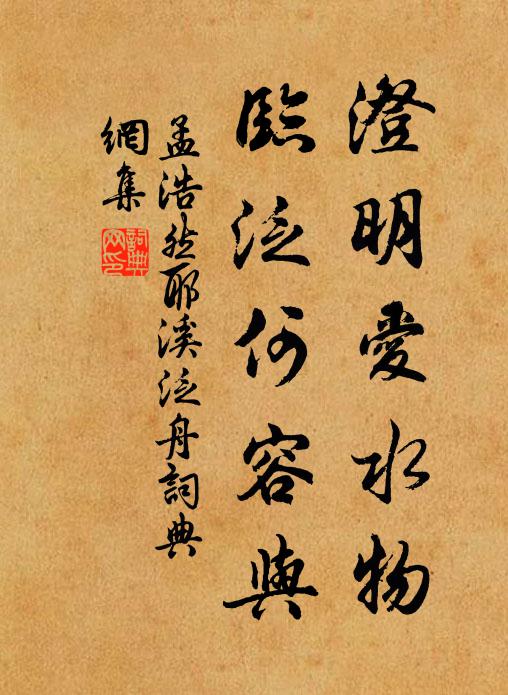 澄明愛水物
臨泛何容與
孟浩然耶溪泛舟詞典
網集
詞典網印